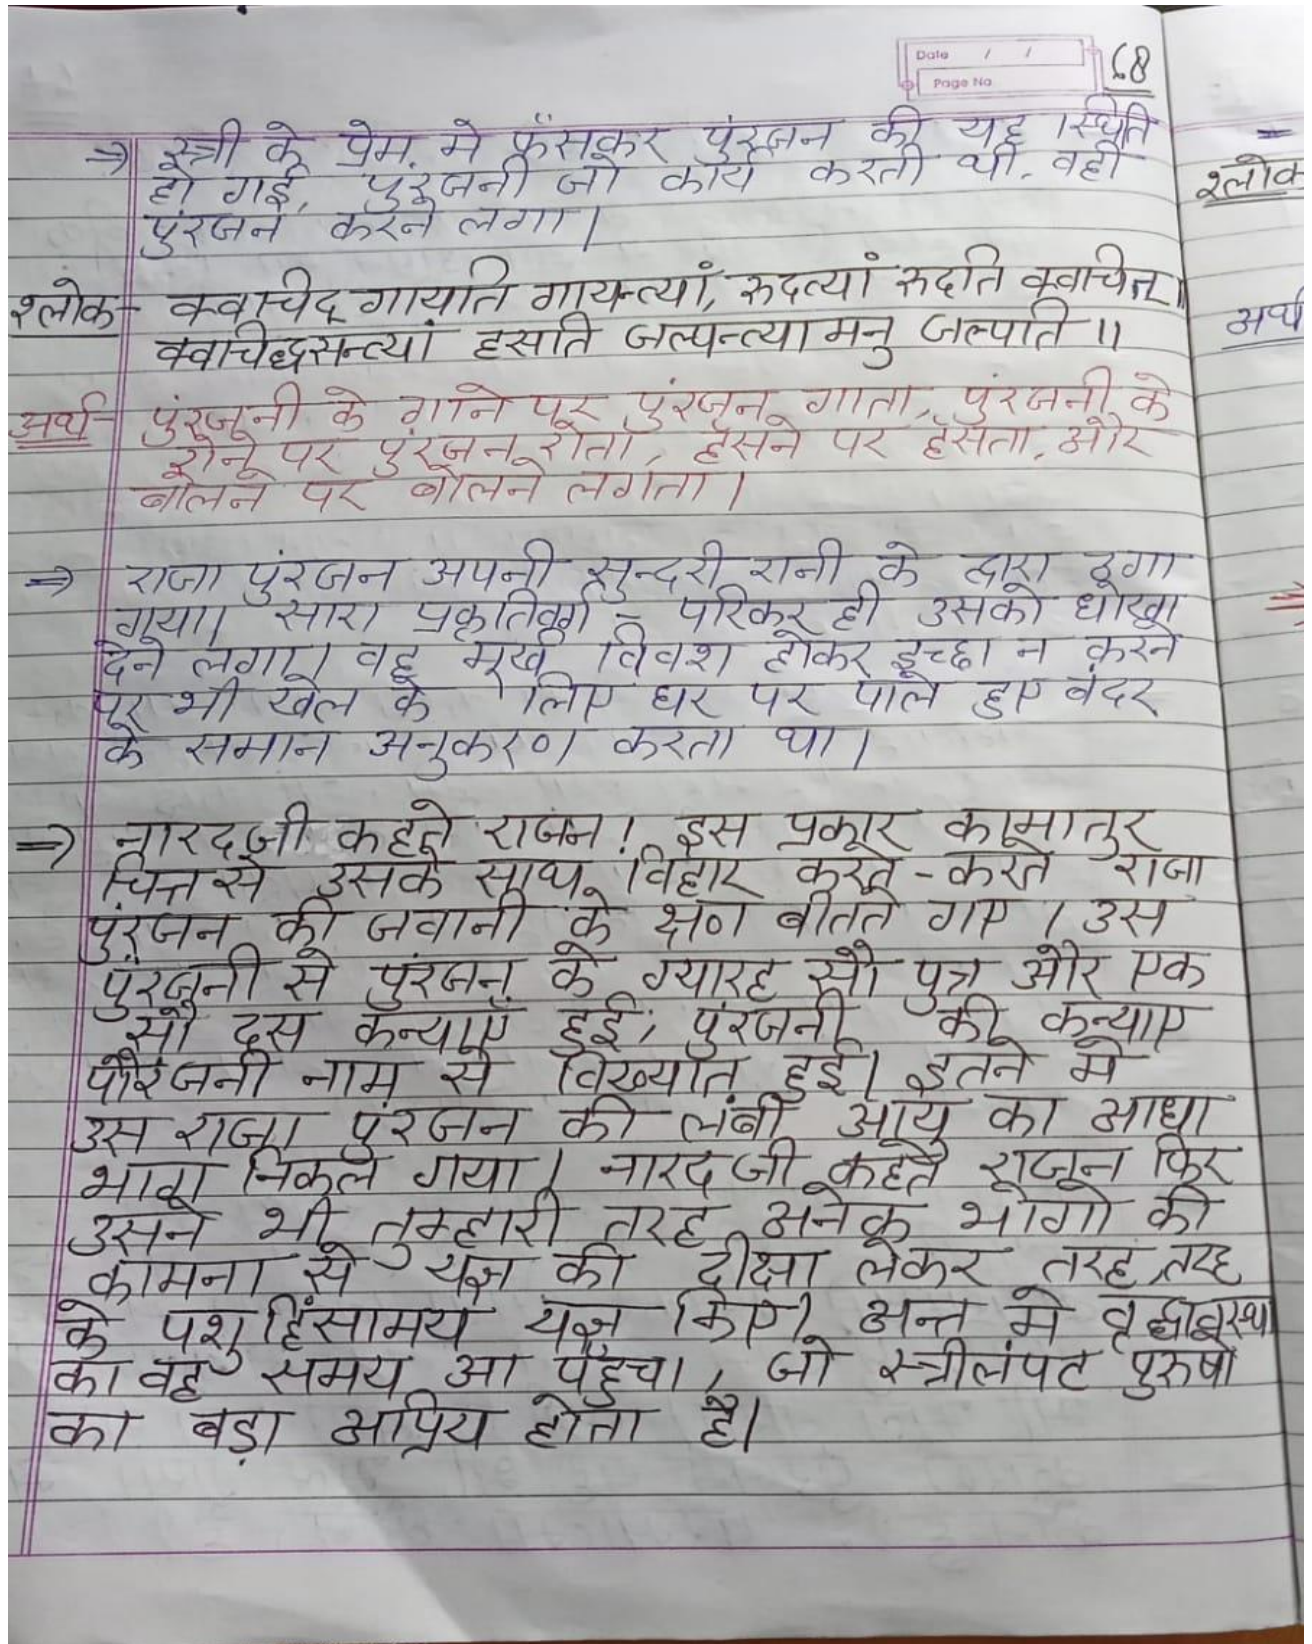 Date / /
Page No
68
⇒ स्त्री के प्रेम. मे फॅसकर पुंरजन की यह स्थिति
हो गई, पुंरजनी जो कार्य करती थी. वही
पुंरजन करने लगा।
श्लोक- क्वाचिद् गायति गायन्त्यां, रुदत्यां रुदति क्वाचित्।
क्वाचिद्धसन्त्यां हसति जल्पन्त्यामनु जल्पति ॥
अर्थ- पुंरजनी के गाने पर पुंरजन गाता, पुंरजनी के
रोने पर पुंरजन रोता, हॅसने पर हॅसता, और
बोलने पर बोलने लगता।
⇒ राजा पुंरजन अपनी सुन्दरी रानी के द्वारा ठगा
गया। सारा प्रकृतिवर्ग - परिकर ही उसको धोखा
देने लगा। वह मूर्ख विवश होकर इच्छा न करने
पर भी खेल के लिए घर पर पाले हुए बंदर
के समान अनुकरण करता था।
⇒ नारदजी कहते राजन! इस प्रकार कामातुर
चित्त से उसके साथ विहार करते - करते राजा
पुंरजन की जवानी के क्षण बीतते गए। उस
पुंरजनी से पुंरजन के ग्यारह सौ पुत्र और एक
सौ दस कन्याएँ हुई, पुंरजनी की कन्याए
पौरंजनी नाम से विख्यात हुई। इतने मे
उस राजा पुंरजन की लंबी आयु का आधा
भाग निकल गया। नारद जी कहते राजन फिर
उसने भी तुम्हारी तरह अनेक भोगो की
कामना से यज्ञ की दीक्षा लेकर तरह तरह
के पशु हिंसामय यज्ञ किए। अन्त मे वृद्धावस्था
का वह समय आ पहुँचा, जो स्त्रीलंपट पुरुषो
का बड़ा अप्रिय होता है।
श्लोक
अर्थ